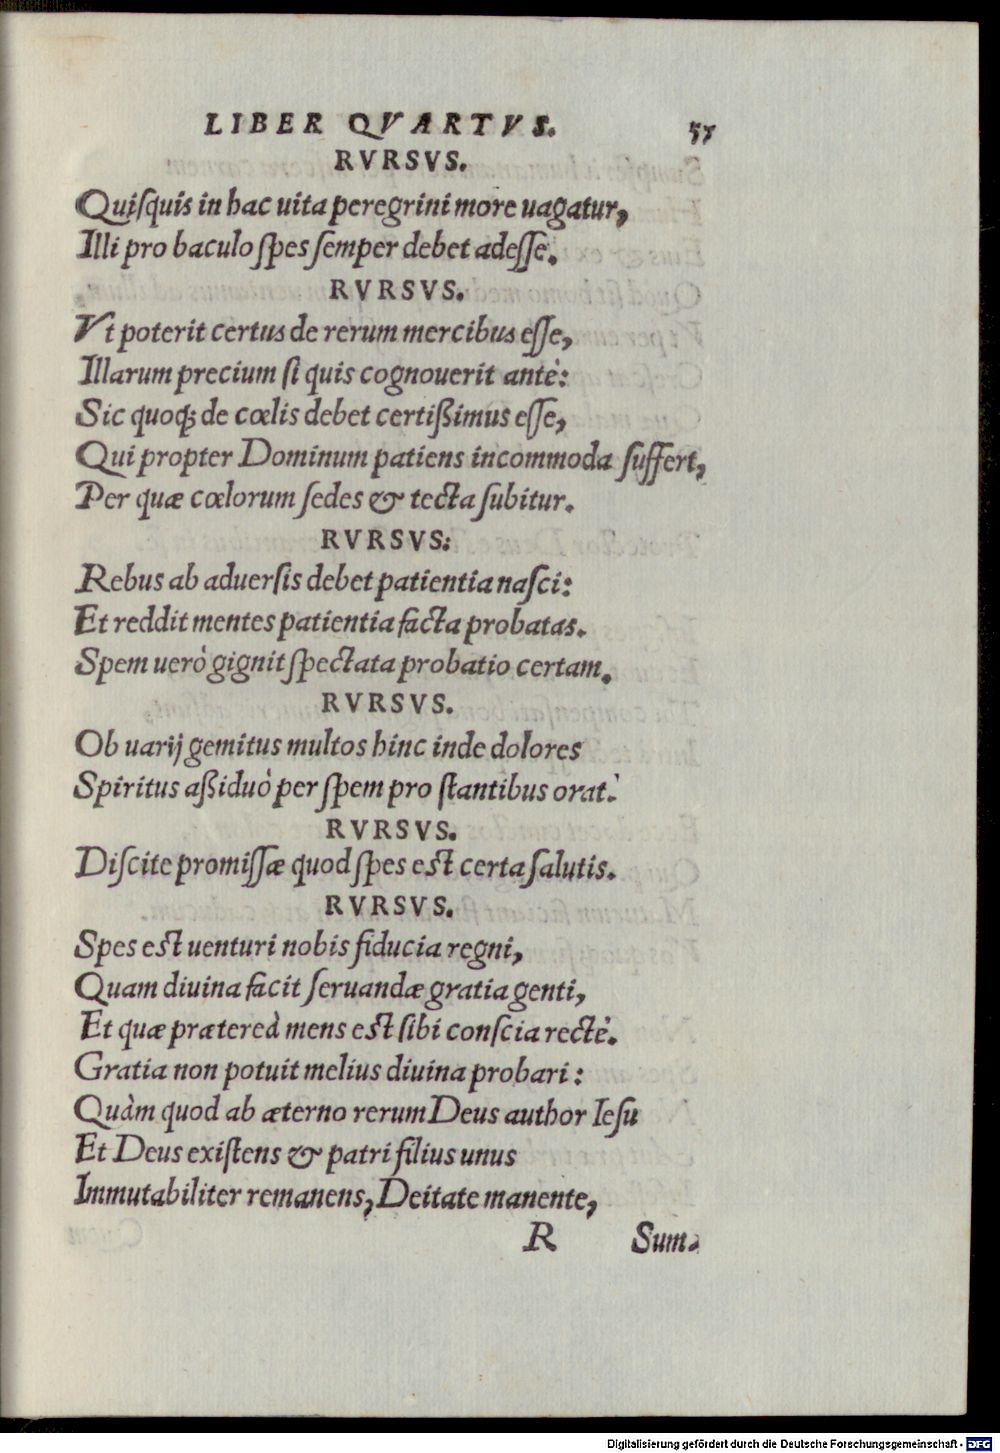 LIBER QVARTVS. 57
RVRSVS.
Quiſquis in hac uita peregrini more uagatur,
Illi pro baculo ſpes ſemper debet adeſſe.
RVRSVS.
Vt poterit certus de rerum mercibus eſſe,
Illarum precium ſi quis cognouerit antè:
Sic quoq; de cœlis debet certißimus eſſe,
Qui propter Dominum patiens incommoda ſuffert,
Per quæ cœlorum ſedes & tecta ſubitur.
RVRSVS:
Rebus ab aduerſis debet patientia naſci:
Et reddit mentes patientia facta probatas.
Spem uerò gignit ſpectata probatio certam.
RVRSVS.
Ob uarij gemitus multos hinc inde dolores
Spiritus aßiduò per ſpem pro ſtantibus orat.
RVRSVS.
Diſcite promiſſæ quod ſpes eſt certa ſalutis.
RVRSVS.
Spes eſt uenturi nobis fiducia regni,
Quam diuina facit ſeruandæ gratia genti,
Et quæ prætereà mens eſt ſibi conſcia rectè.
Gratia non potuit melius diuina probari:
Quàm quod ab æterno rerum Deus author Ieſu
Et Deus exiſtens & patri filius unus
Immutabiliter remanens, Deitate manente,
R Sum-
Digitalisierung gefördert durch die Deutsche Forschungsgemeinschaft - DFG